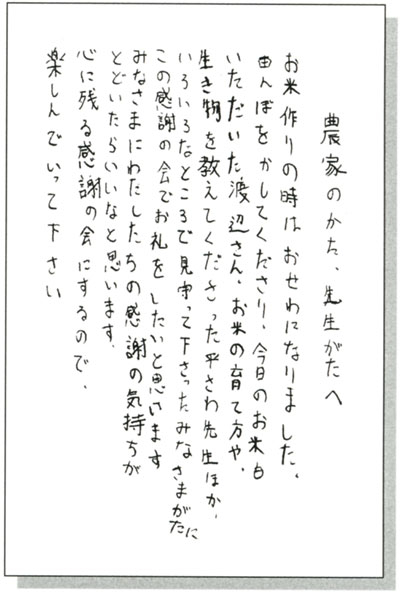 農家のかた、先生がたへ
お米作りの時はおせわになりました。
田んぼをかしてくださり、今日のお米も
いただいた渡辺さん、お米の育て方や、
生き物を教えてくださった平さわ先生ほか、
いろいろなところで見守って下さったみなさまがたに
この感謝の会でお礼をしたいと思います
みなさまにわたしたちの感謝の気持ちが
とどいたらいいなと思います。
心に残る感謝の会にするので、
楽しんでいって下さい